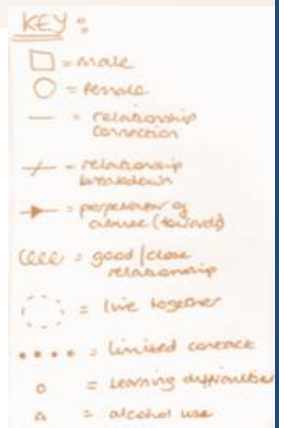 KEY :
= male
= female
= relationship
connection
= relationship
breakdown
= perpetrator of
abuse (towards)
= good/close
relationship
= live together
= limited contact
= learning difficulties
= alcohol use